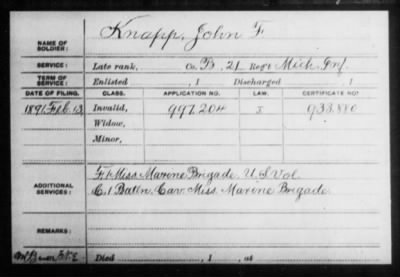 NAME OF SOLDIER: Knapp, John F.
SERVICE: Late rank, Co. B, 21 Reg't Mich. Inf.
TERM OF SERVICE: Enlisted , 1 Discharged , 1
DATE OF FILING. CLASS. APPLICATION NO. LAW. CERTIFICATE NO.
1891 Feb. 13, Invalid, 997.204 938.880
Widow,
Minor,
ADDITIONAL SERVICES: F. 1 Miss. Marine Brigade U.S. Vol.
C. 1 Battn. Cav. Miss. Marine Brigade
REMARKS:
Died , 1 , at